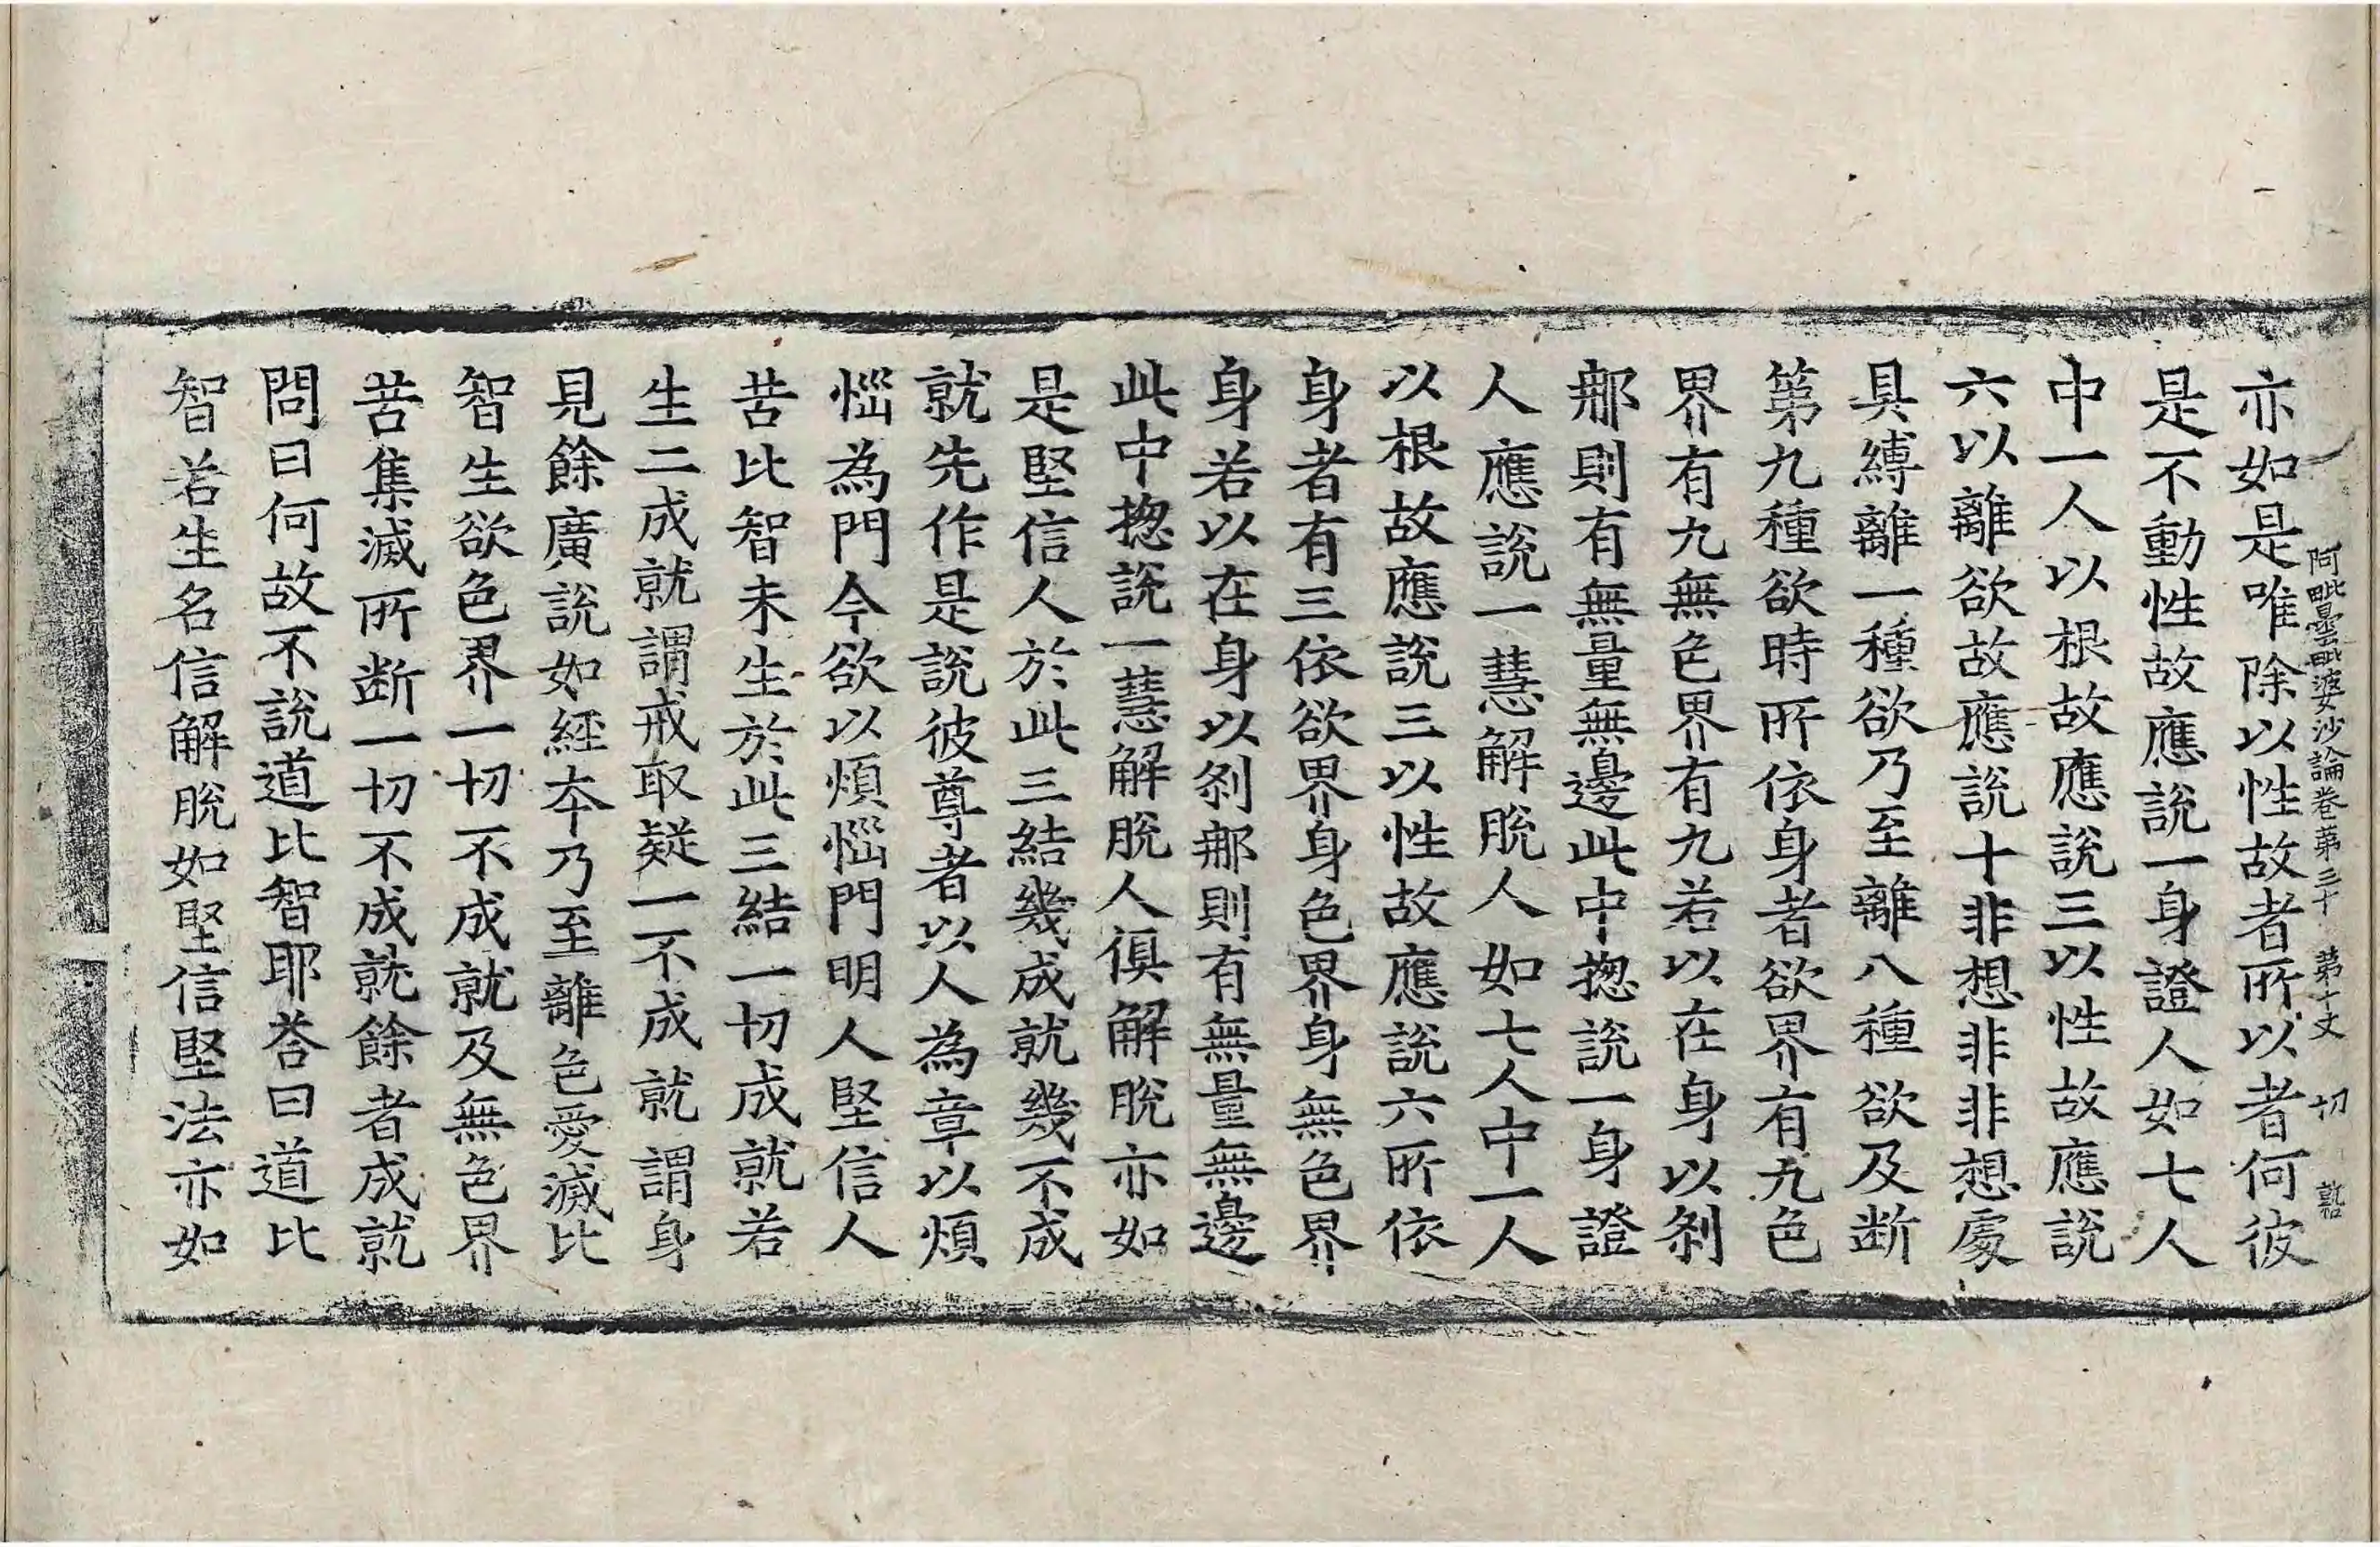 阿毗曇毗婆沙論卷第三十 第十丈 切
亦如是唯除以性故者所以者何彼
是不動性故應說一身證人如七人
中一人以根故應說三以性故應說
六以離欲故應說十非想非非想處
具縛離一種欲乃至離八種欲及断
第九種欲時所依身者欲界有九色
界有九無色界有九若以在身以剎
那則有無量無邊此中揔說一身證
人應說一慧解脫人如七人中一人
以根故應說三以性故應說六所依
身者有三依欲界身色界身無色界
身若以在身以剎那則有無量無邊
此中揔說一慧解脫人俱解脫亦如
是堅信人於此三結幾成就幾不成
就先作是說彼尊者以人為章以煩
惱為門今欲以煩惱門明人堅信人
苦比智未生於此三結一切成就若
生二成就謂戒取疑一不成就謂身
見餘廣說如經夲乃至離色愛滅比
智生欲色界一切不成就及無色界
苦集滅所断一切不成就餘者成就
問曰何故不說道比智耶荅曰道比
智若生名信解脫如堅信堅法亦如